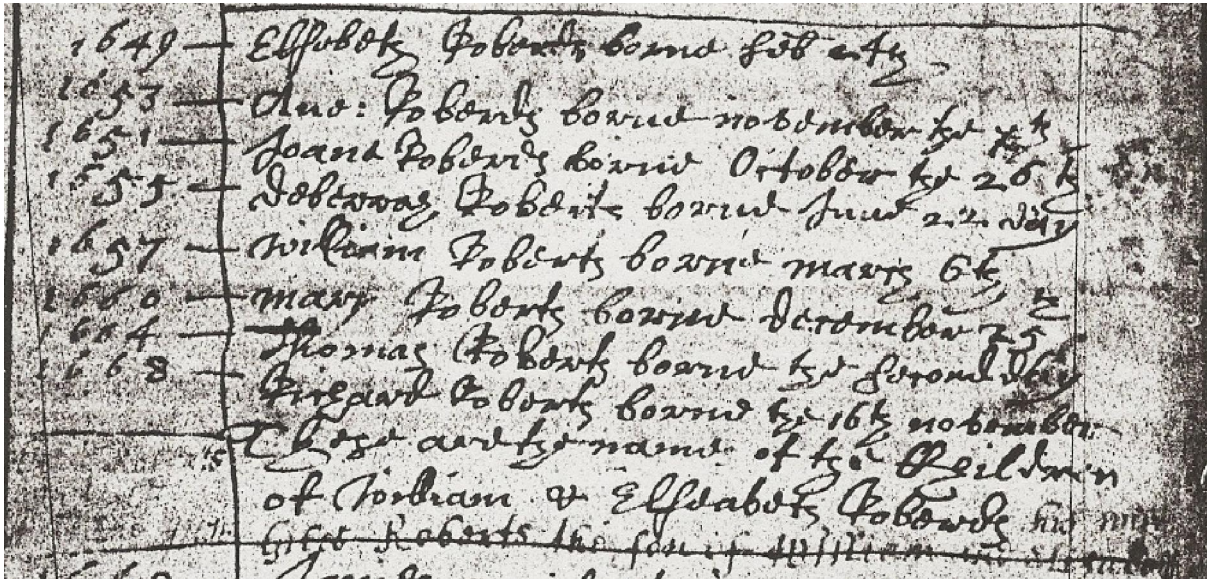 1649 — Elsebeth Roberds borne feb 2th
1653 — Ane: Roberds borne november the xth
1651 — Joane Roberds borne October the 26th
1655 — deberray Roberts borne June 22 day
1657 — William Roberts borne march 6th
1660 — mary Roberts borne december 25th
1664 — Thomas Roberts borne the second day
1668 — Richard Roberts borne the 16th november
These are the name of the Children
of William & Elseabeth Roberds his wife
Roberts the son of William